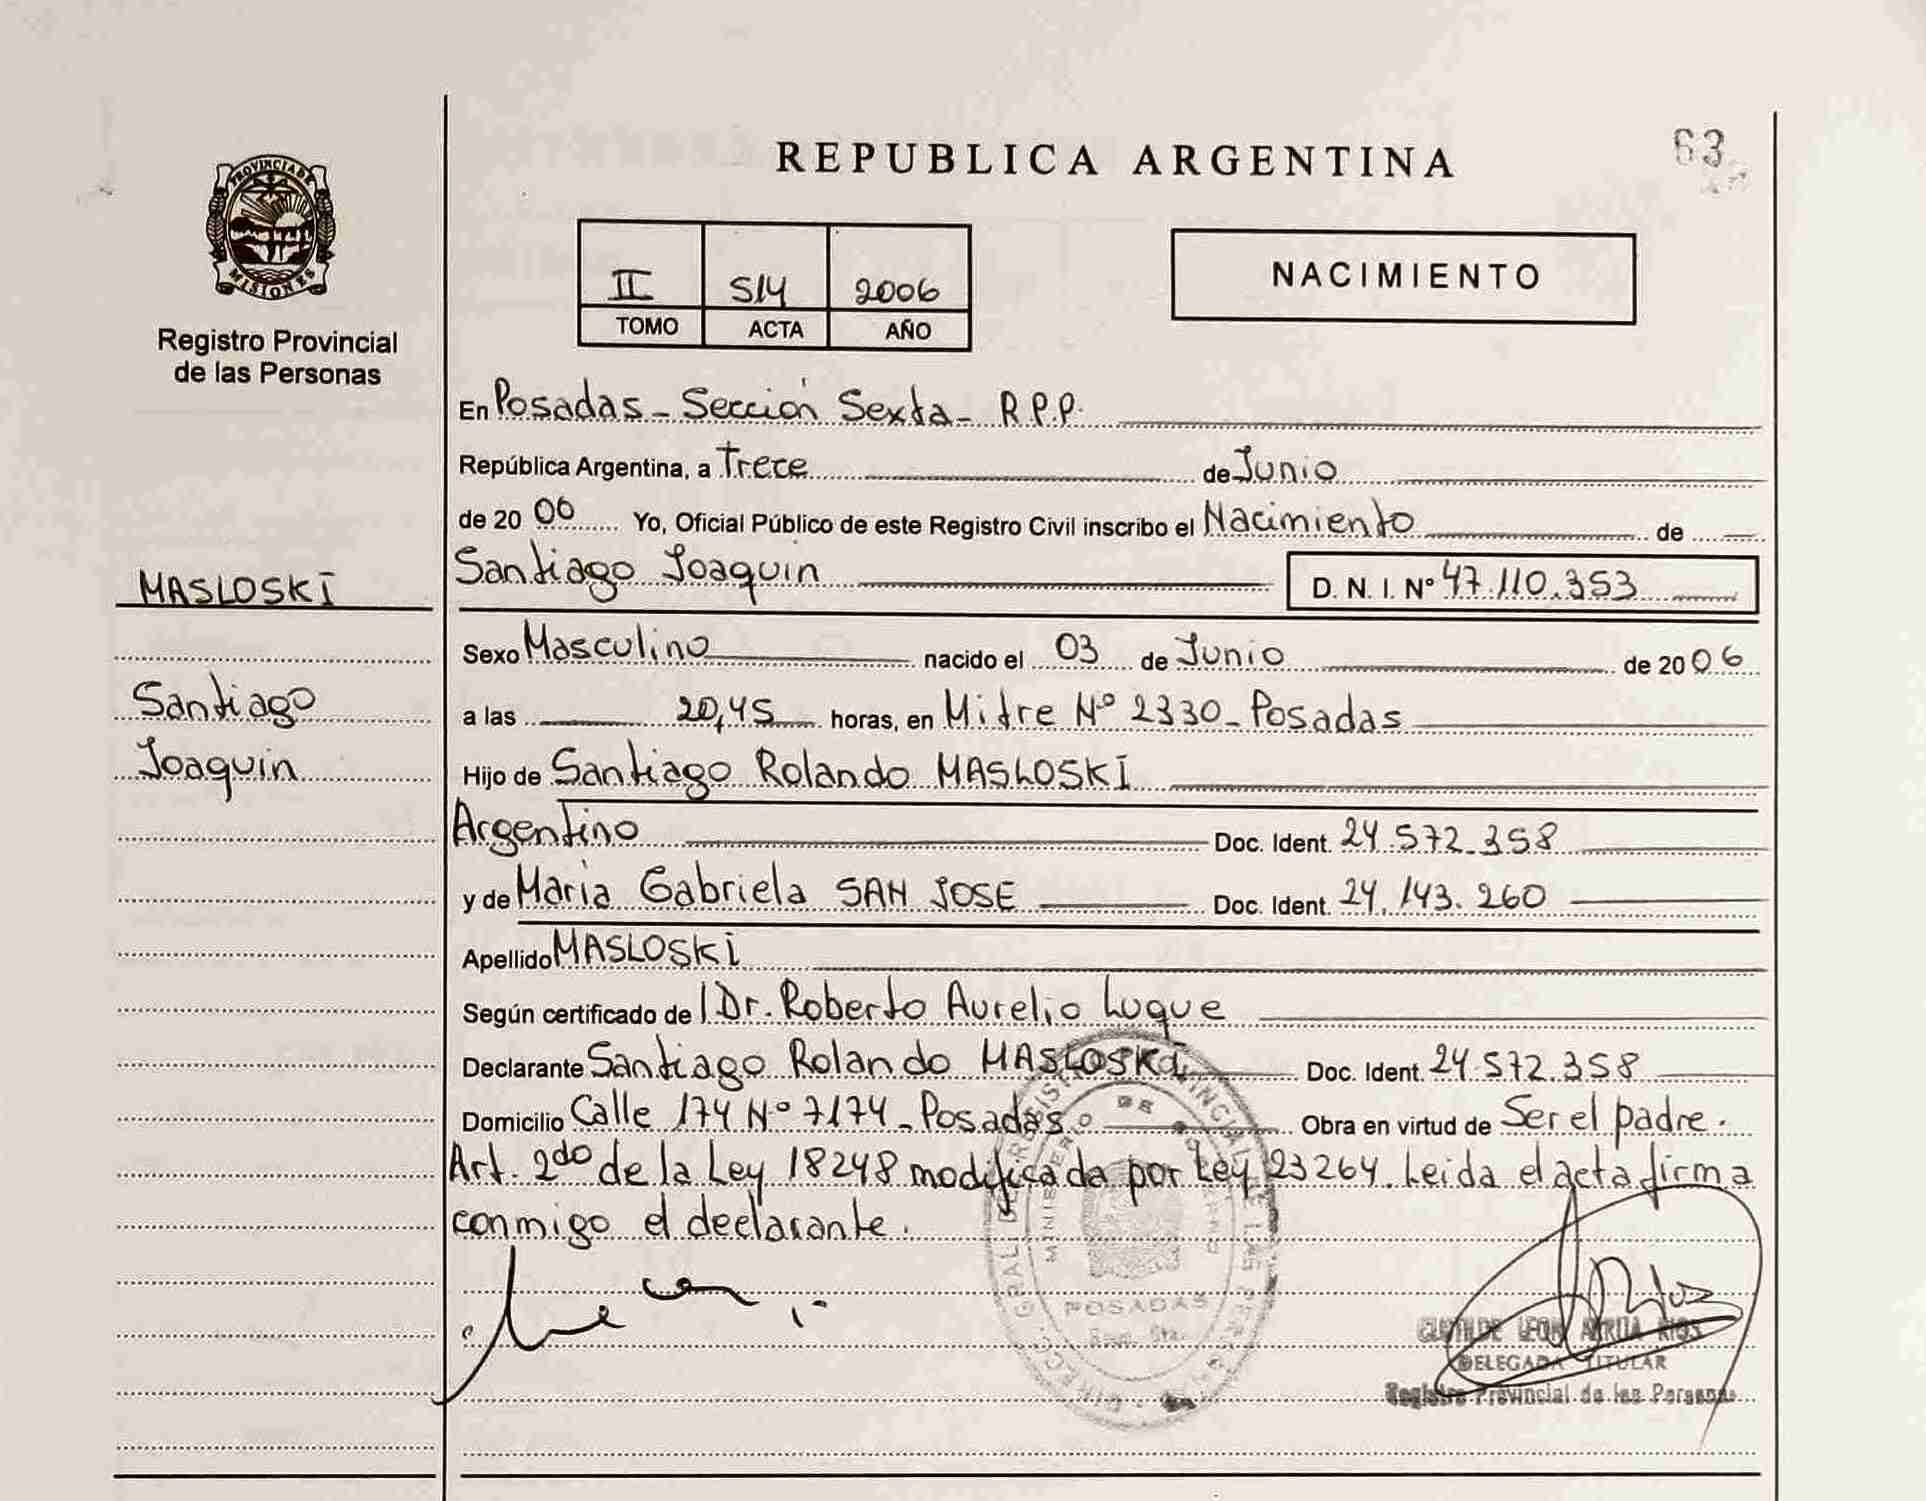 REPUBLICA ARGENTINA
63
PROVINCIA DE
MISIONES
Registro Provincial
de las Personas
II 514 2006
TOMO ACTA AÑO
NACIMIENTO
En Posadas - Sección Sexta - R.P.P.
República Argentina, a Trece de Junio
de 20 06 Yo, Oficial Público de este Registro Civil inscribo el Nacimiento de
MASLOSKI
Santiago Joaquin D. N. I. Nº 47.110.353
Sexo Masculino nacido el 03 de Junio de 20 06
Santiago
a las 20,45 horas, en Mitre Nº 2330 - Posadas
Joaquin
Hijo de Santiago Rolando MASLOSKI
Argentino Doc. Ident. 24.572.358
y de Maria Gabriela SAN JOSE Doc. Ident. 24.143.260
Apellido MASLOSKI
Según certificado de l Dr. Roberto Aurelio Luque
Declarante Santiago Rolando MASLOSKI Doc. Ident. 24.572.358
Domicilio Calle 174 Nº 7174 - Posadas Obra en virtud de Ser el padre.
Art. 2do de la Ley 18248 modificada por Ley 23264. Leida el acta firma
conmigo el declarante.
POSADAS
CLOTILDE LEON RIOS
DELEGADA TITULAR
Registro Provincial de las Personas